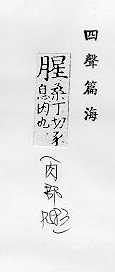 四聲篇海
腥
桑丁切豕
息肉也
(肉部